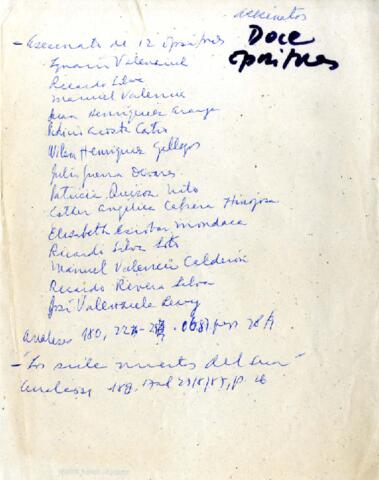 asesinatos
Doce
opositores
- Asesinato de 12 opositores
Ignacio Valenzuel
Ricardo Silva
Manuel Valencia
Juan Henríquez Araya
Patricio Acosta Castro
Wilson Henríquez Gallegos
Julio Guerra Olivares
Patricia Quiroz Nilo
Esther Angélica Cabrera Hinojosa
Elizabeth Escobar Mondaca
Ricardo Silva Soto
Manuel Valencia Calderón
Ricardo Rivera Silva
José Valenzuela Levy
Analisis 180, 22
- "Los siete muertos del
Analisis, 189,